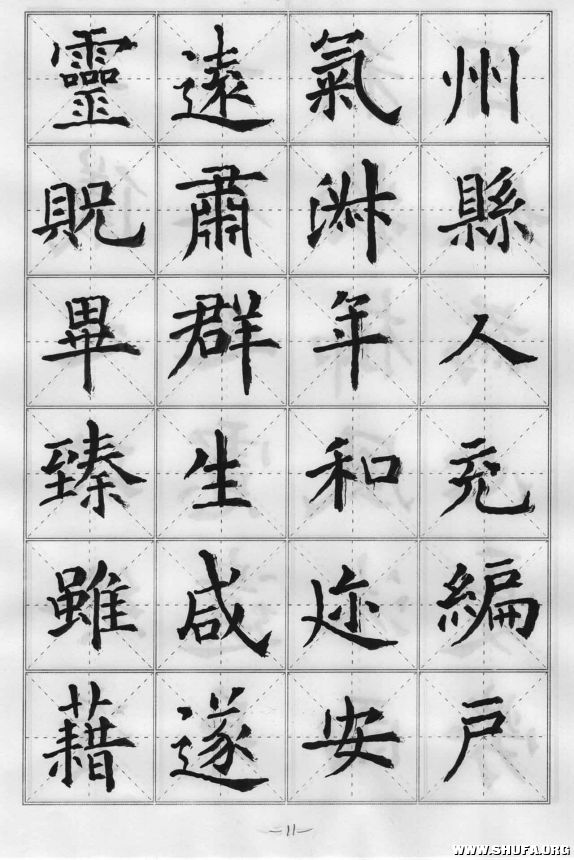 州縣人充編戶
氣淑年和迩安
遠肅群生咸遂
靈貺畢臻雖藉
-11-
WWW.SHUFA.ORG